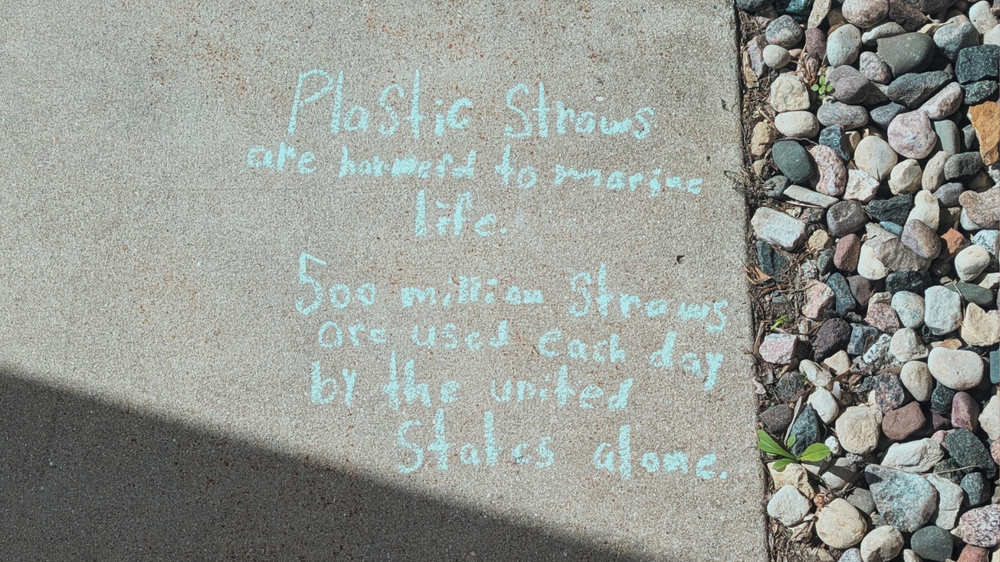 Plastic Straws
are harmful to marine
life.
500 million Straws
are used each day
by the united
States alone.